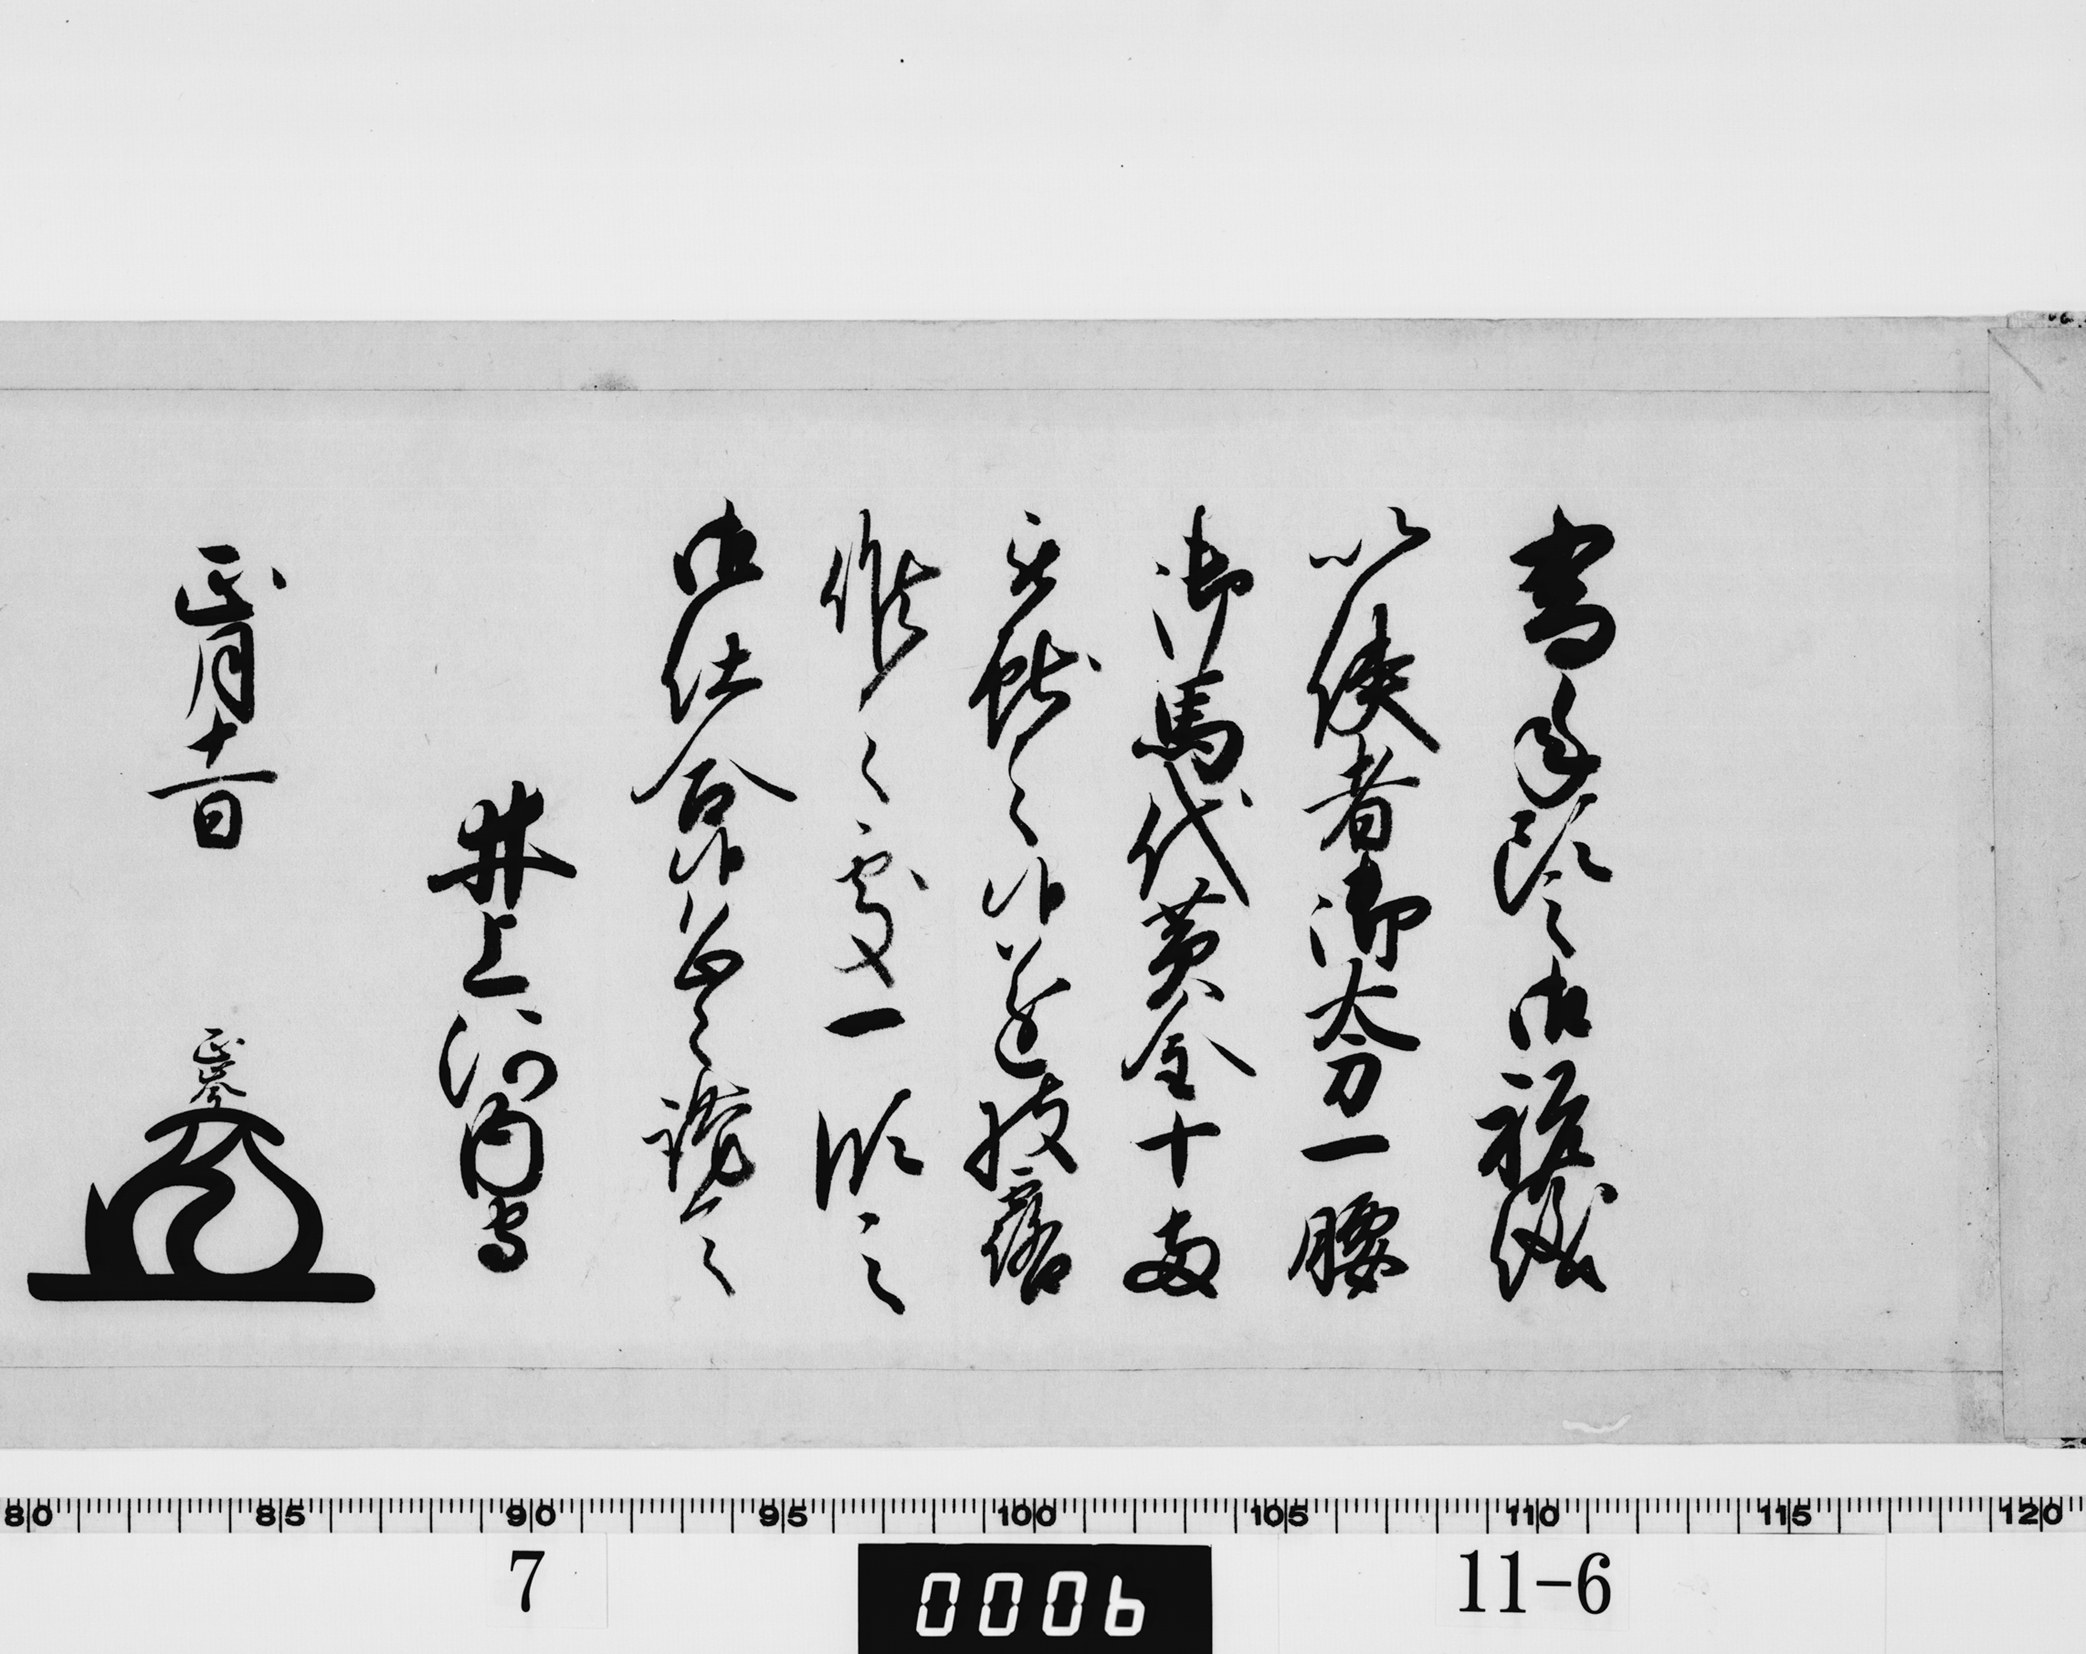 當年頭之御祝儀
以使者御太刀一腰
御馬代黄金十両
被献之候遂披露
之處一段之
御仕合候恐々謹言
井上河内守
正月十一日
正岑
80 85 90 95 100 105 110 115 120
7 0006 11-6